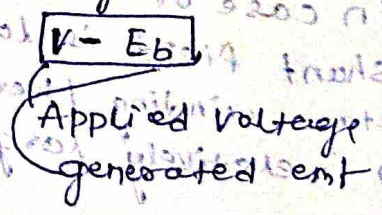 V - Eb
Applied voltage
generated emf